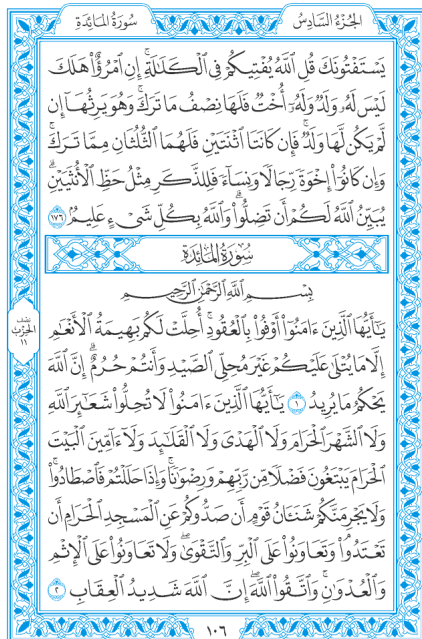 سُورَةُ المَائِدَة
الجُزْءُ السَّادِسُ
يَسْتَفْتُونَكَ قُلِ ٱللَّهُ يُفْتِيكُمْ فِي ٱلْكَلَٰلَةِۚ إِنِ ٱمْرُؤٌاْ هَلَكَ
لَيْسَ لَهُۥ وَلَدٞ وَلَهُۥٓ أُخْتٞ فَلَهَا نِصْفُ مَا تَرَكَۚ وَهُوَ يَرِثُهَآ إِن
لَّمْ يَكُن لَّهَا وَلَدٞۚ فَإِن كَانَتَا ٱثْنَتَيْنِ فَلَهُمَا ٱلثُّلُثَانِ مِمَّا تَرَكَۚ
وَإِن كَانُوٓاْ إِخْوَةٗ رِّجَالٗا وَنِسَآءٗ فَلِلذَّكَرِ مِثْلُ حَظِّ ٱلْأُنثَيَيْنِۗ
يُبَيِّنُ ٱللَّهُ لَكُمْ أَن تَضِلُّواْۗ وَٱللَّهُ بِكُلِّ شَيْءٍ عَلِيمُۢ ١٧٦
سُورَةُ المَائِدَة
بِسْمِ ٱللَّهِ ٱلرَّحْمَٰنِ ٱلرَّحِيمِ
يَٰٓأَيُّهَا ٱلَّذِينَ ءَامَنُوٓاْ أَوْفُواْ بِٱلْعُقُودِۚ أُحِلَّتْ لَكُم بَهِيمَةُ ٱلْأَنْعَٰمِ
إِلَّا مَا يُتْلَىٰ عَلَيْكُمْ غَيْرَ مُحِلِّي ٱلصَّيْدِ وَأَنتُمْ حُرُمٌۗ إِنَّ ٱللَّهَ
يَحْكُمُ مَا يُرِيدُ ١ يَٰٓأَيُّهَا ٱلَّذِينَ ءَامَنُواْ لَا تُحِلُّواْ شَعَٰٓئِرَ ٱللَّهِ
وَلَا ٱلشَّهْرَ ٱلْحَرَامَ وَلَا ٱلْهَدْيَ وَلَا ٱلْقَلَٰٓئِدَ وَلَآ ءَآمِّينَ ٱلْبَيْتَ
ٱلْحَرَامَ يَبْتَغُونَ فَضْلٗا مِّن رَّبِّهِمْ وَرِضْوَٰنٗاۚ وَإِذَا حَلَلْتُمْ فَٱصْطَادُواْۚ
وَلَا يَجْرِمَنَّكُمْ شَنَـَٔانُ قَوْمٍ أَن صَدُّوكُمْ عَنِ ٱلْمَسْجِدِ ٱلْحَرَامِ أَن
تَعْتَدُواْۘ وَتَعَاوَنُواْ عَلَى ٱلْبِرِّ وَٱلتَّقْوَىٰۖ وَلَا تَعَاوَنُواْ عَلَى ٱلْإِثْمِ
وَٱلْعُدْوَٰنِۚ وَٱتَّقُواْ ٱللَّهَۖ إِنَّ ٱللَّهَ شَدِيدُ ٱلْعِقَابِ ٢
نصف
الحزب
١١
١٠٦